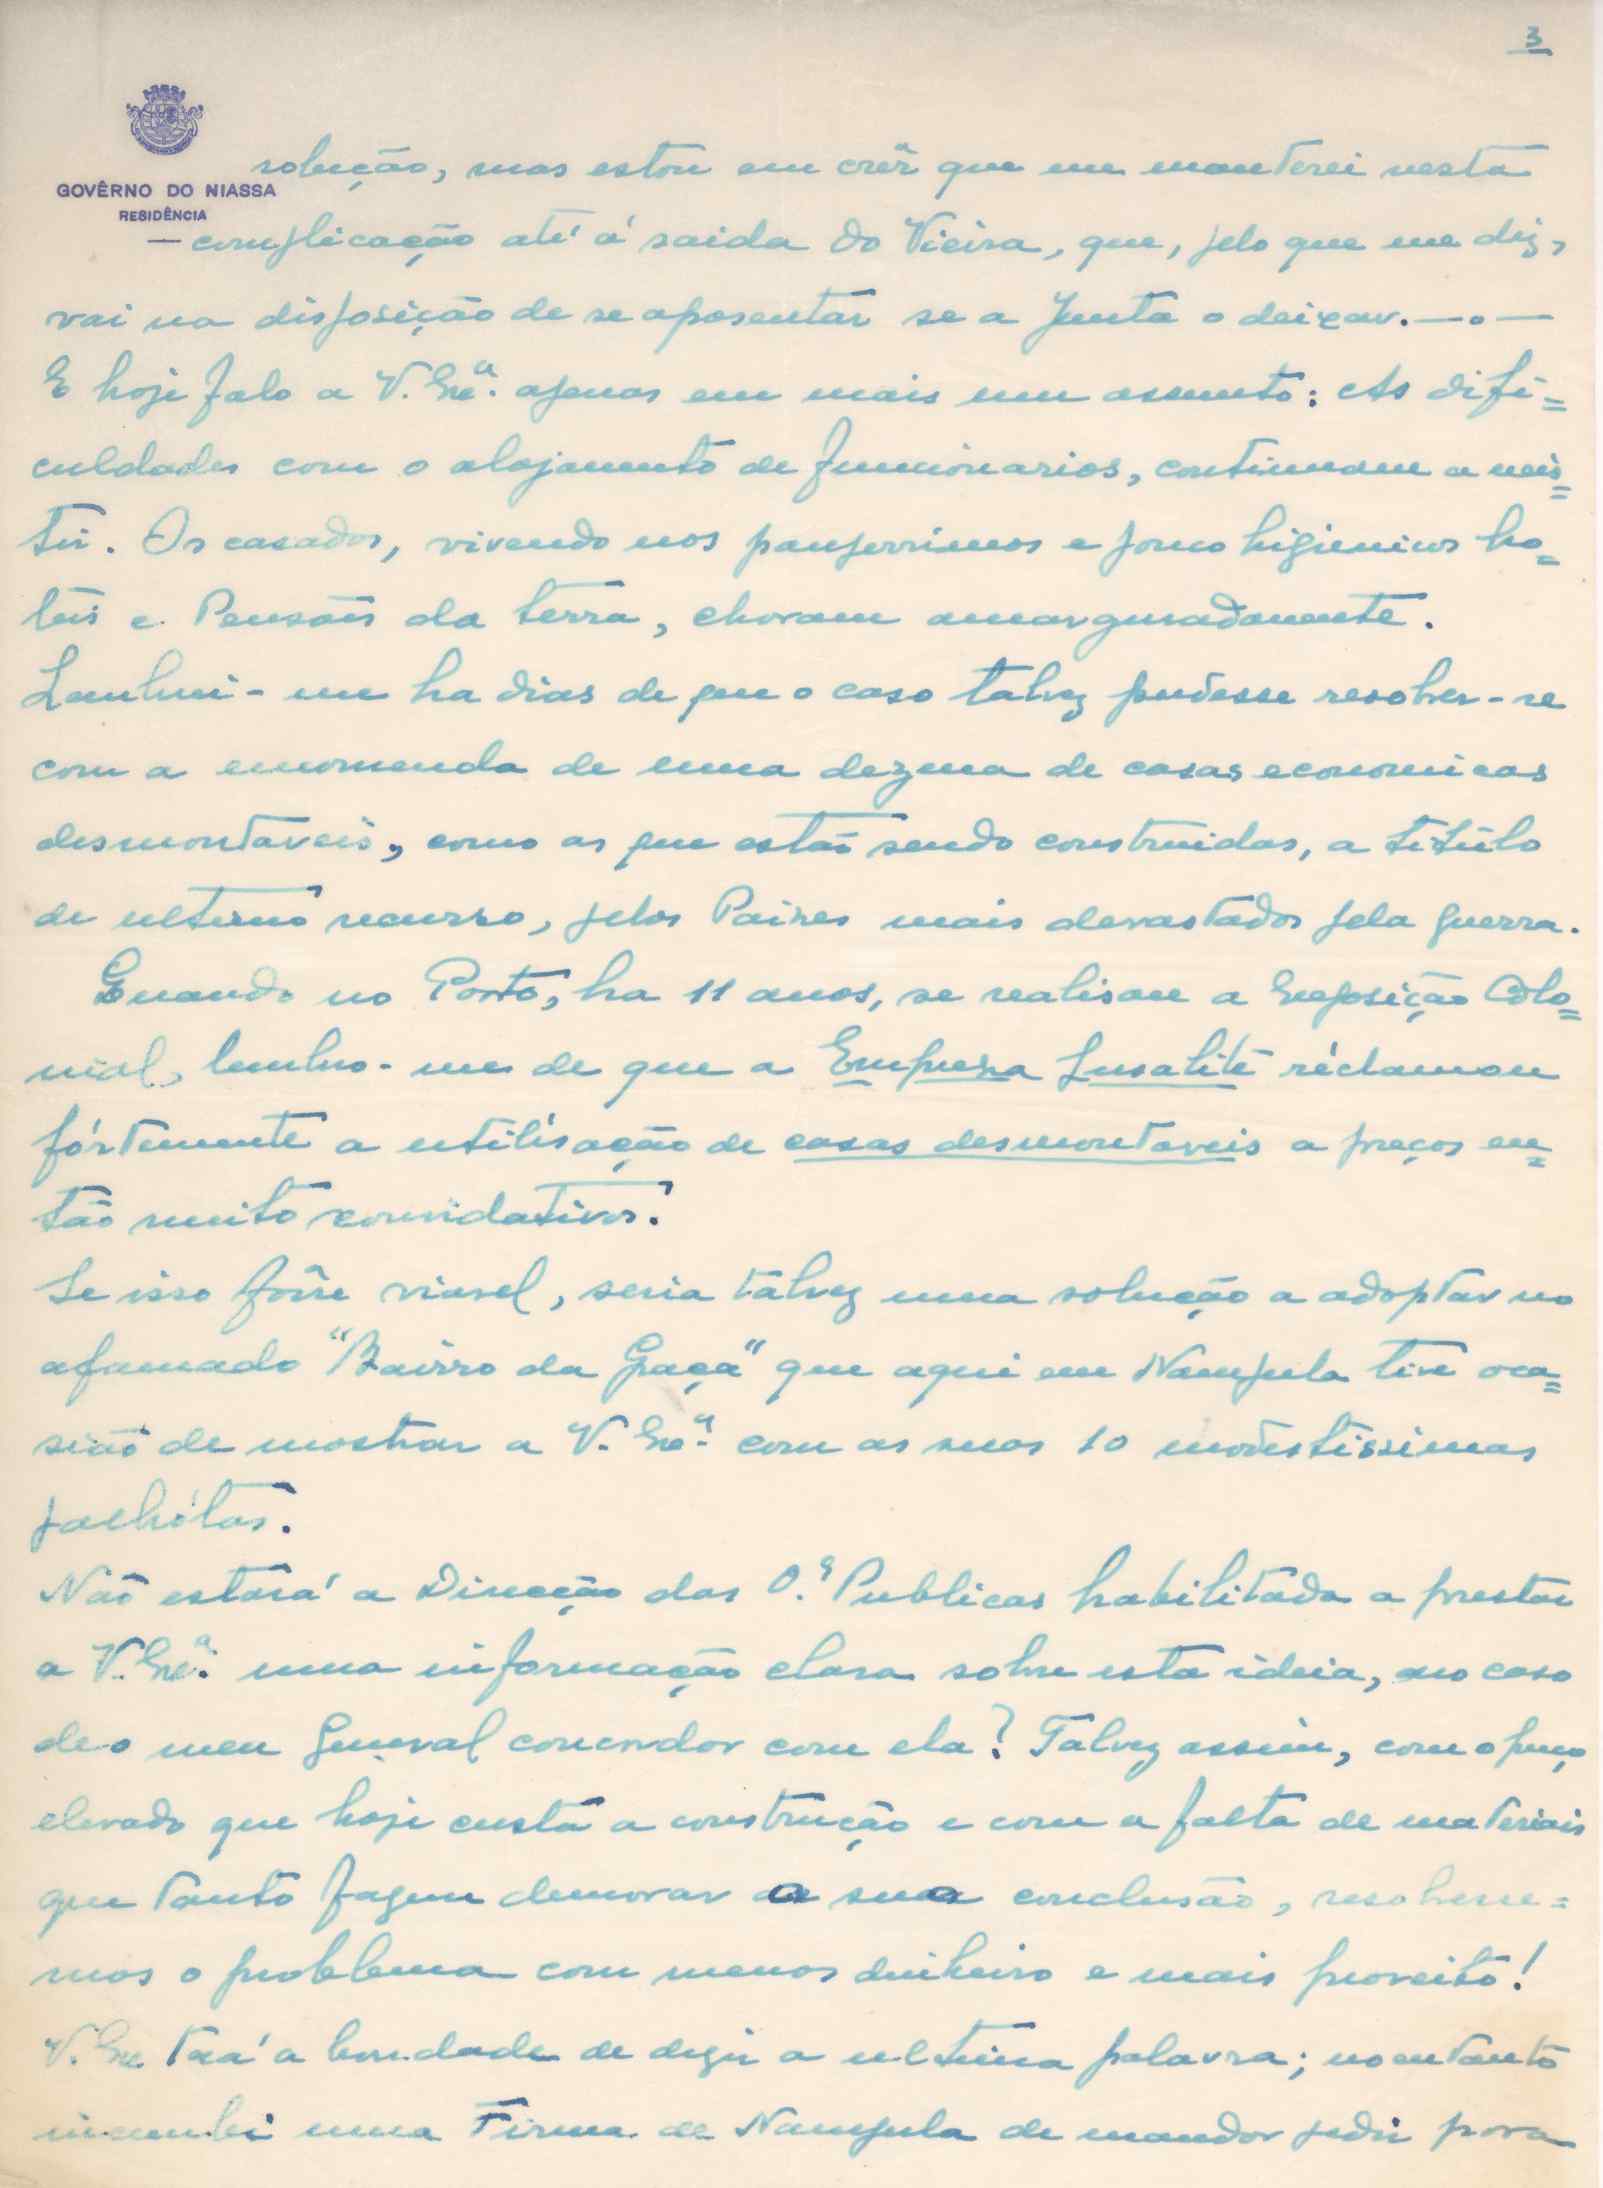 3
GOVÊRNO DO NIASSA
RESIDÊNCIA
solução, mas estou em crêr que me manterei nesta
— complicação até á saida do Vieira, que, pelo que me diz,
vai na disposição de se aposentar se a Junta o deixar. —.—
E hoje falo a V. Exª. apenas em mais um assunto: As difi=
culdades com o alojamento de funcionarios, continuam a exis=
tir. Os casados, vivendo nos pauperrimos e pouco higienicos ho=
teis e Pensões da terra, choram amarguradamente.
Lembrei-me ha dias de que o caso talvez pudesse resolver-se
com a encomenda de uma dezena de casas economicas
desmontaveis, como as que estão sendo construidas, a titulo
de ultimo recurso, pelos Paizes mais devastados pela guerra.
Quando no Porto, ha 11 anos, se realisou a Exposição Colo=
nial, lembro-me de que a Empresa Lusalite réclamou
fórtemente a utilisação de casas desmontaveis a preços en=
tão muito convidativos.
Se isso fôsse viavel, seria talvez uma solução a adoptar no
afamado "Bairro da Graça" que aqui em Nampula tive oca=
sião de mostrar a V. Exª. com as suas 10 modestissimas
palhótas.
Não estará a Direcção das O.ˢ Publicas habilitada a prestar
a V. Exª. uma informação clara sobre esta ideia, no caso
de o meu General concordar com ela? Talvez assim, com o preço
elevado que hoje custa a construção e com a falta de materiais
que tanto fazem demorar a sua conclusão, resolvere=
mos o problema com menos dinheiro e mais proveito!
V. Exª. terá a bondade de dizer a ultima palavra; no entanto
incumbi uma Firma de Nampula de mandar pedir para